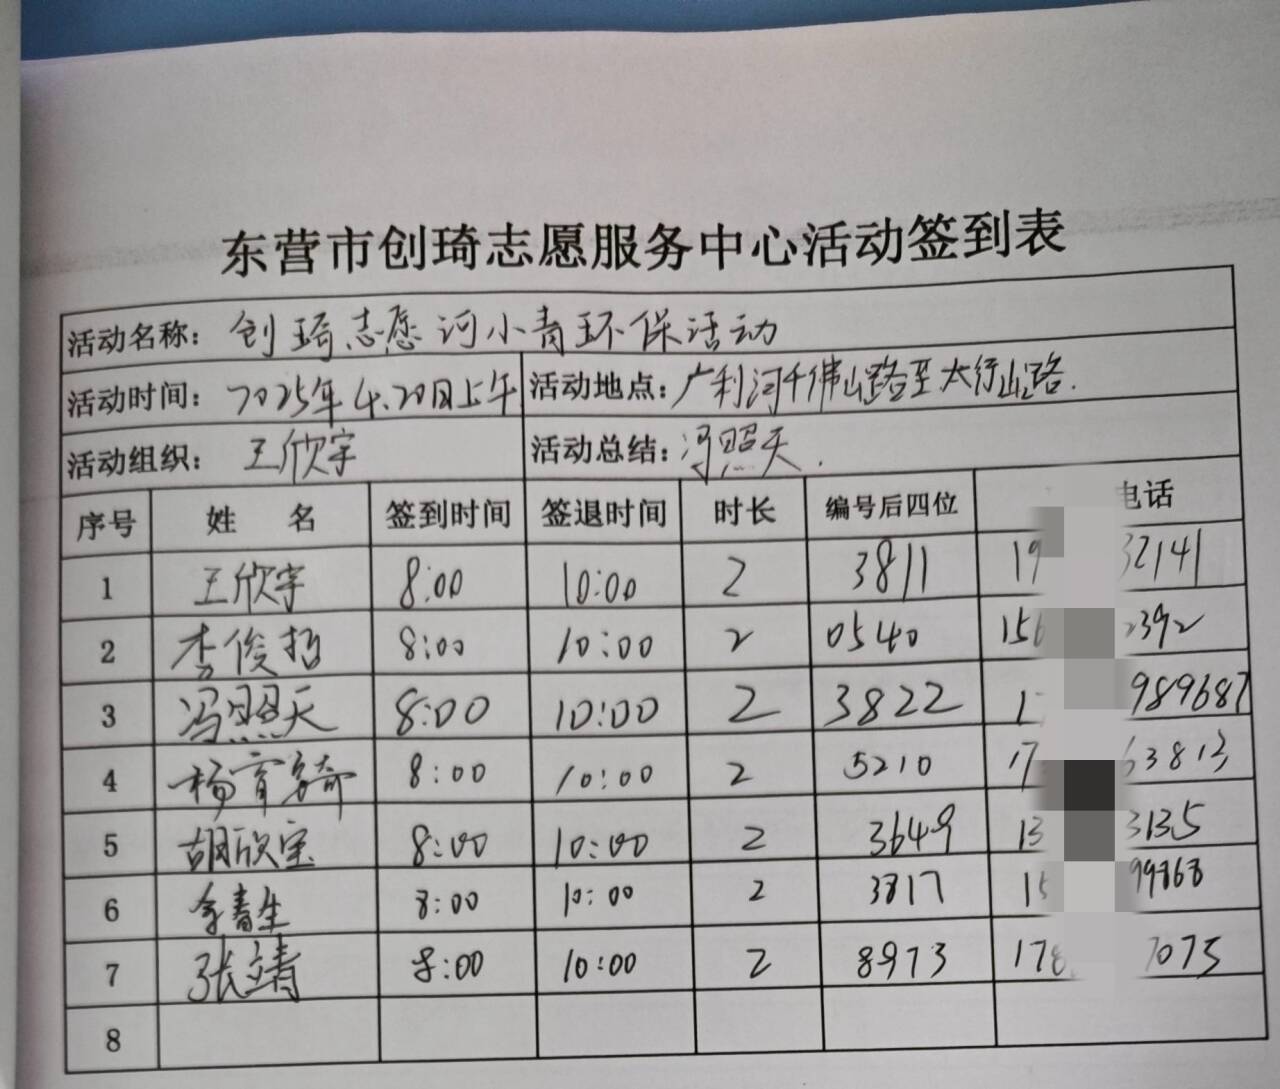 东营市创琦志愿服务中心活动签到表
活动名称：创琦志愿河小青环保活动
活动时间：2025年4.20日上午 活动地点：广利河千佛山路至太行山路.
活动组织：王欣宇 活动总结：冯照天.
序号 姓名 签到时间 签退时间 时长 编号后四位 电话
1 王欣宇 8:00 10:00 2 3811 19 32141
2 李俊哲 8:00 10:00 2 0540 156 2392
3 冯照天 8:00 10:00 2 3822 1 989687
4 杨宵琦 8:00 10:00 2 5210 17 63813
5 胡欣宝 8:00 10:00 2 3649 13 3135
6 李春生 8:00 10:00 2 3817 15 99868
7 张靖 8:00 10:00 2 8973 178 7075
8